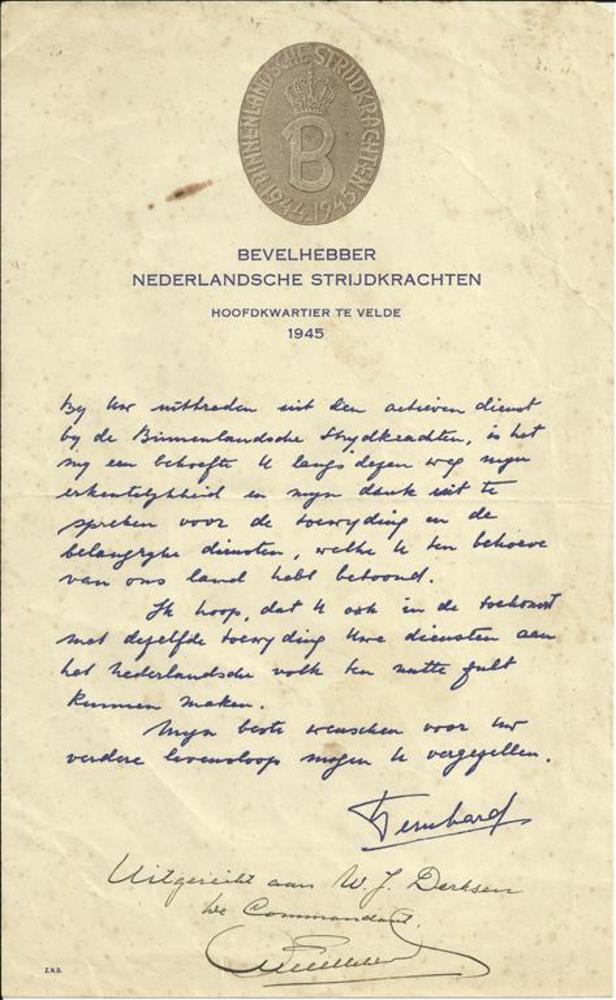 BINNENLANDSCHE STRIJDKRACHTEN
B
1944-1945
BEVELHEBBER
NEDERLANDSCHE STRIJDKRACHTEN
HOOFDKWARTIER TE VELDE
1945
By Uw uittreden uit den actieven dienst
by de Binnenlandsche Strydkrachten, is het
my een behoefte U langs dezen weg myn
erkentelykheid en myn dank uit te
spreken voor de toewyding en de
belangryke diensten, welke U ten behoeve
van ons land hebt betoond.
Ik hoop, dat U ook in de toekomst
met dezelfde toewyding Uwe diensten aan
het Nederlandsche volk ten nutte zult
kunnen maken.
Myn beste wenschen voor Uw
verdere levensloop mogen U vergezellen.
Bernhard
Uitgereikt aan W. J. Derksen
de Commandant.
Z.N.D.